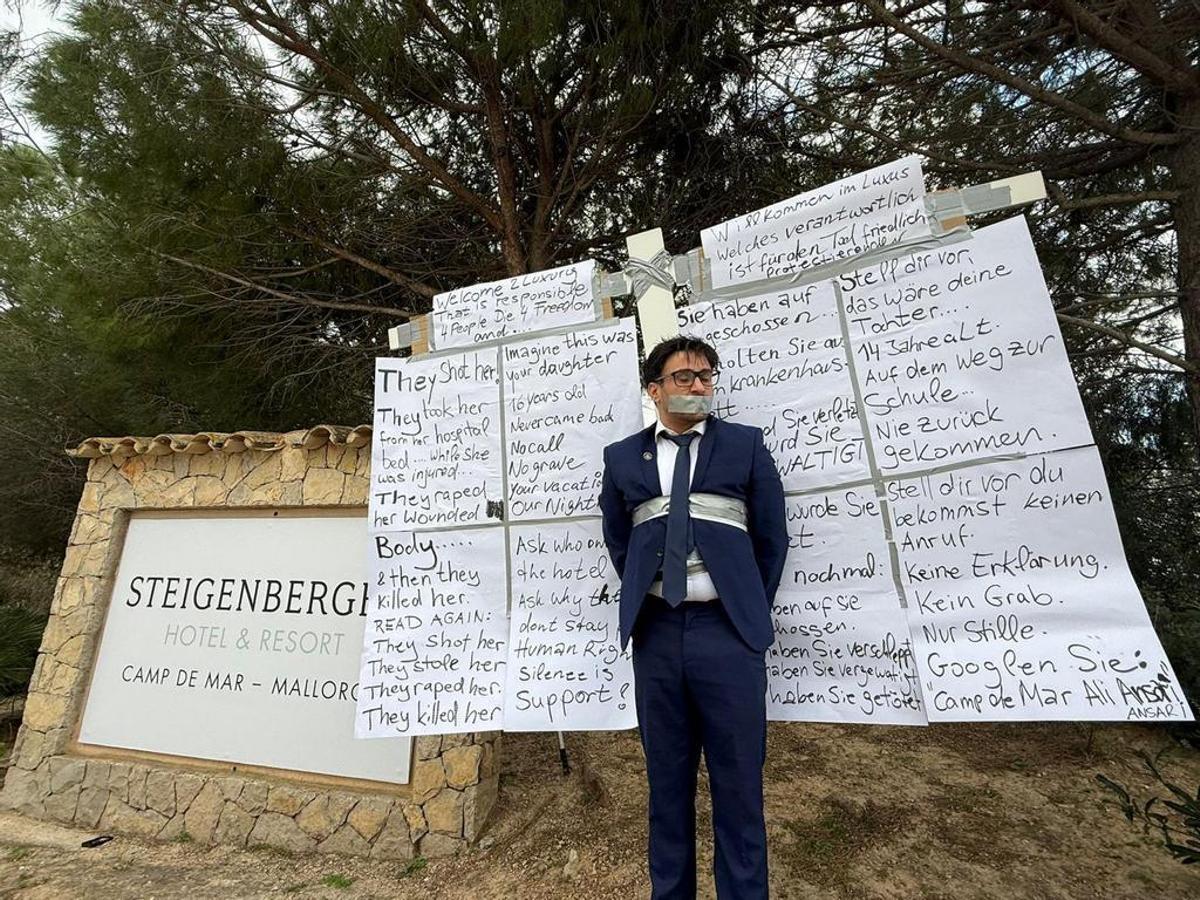 STEIGENBERGE
HOTEL & RESORT
CAMP DE MAR – MALLORC
Welcome 2 Luxury
That is responsible
4 People Die 4 Freedom
and....
They shot her
They took her
from her hospital
bed.... while she
was injured...
They raped
her wounded
Body.....
& then they
killed her.
READ AGAIN:
They shot her
They stole her
They raped her.
They killed her
Imagine this was
your daughter
16 years old
Never came back
No call
No grave
Your vacati
Our Night
Ask who own
the hotel
Ask why the
dont stay
Human Righ
Silence is
Support!
Willkommen im Luxus
Welches verantwortlich
ist für den Tod friedlich
protestierender
Sie haben auf
geschossen...
holten Sie au
m krankenhaus.
tt....
d Sie verletz
urd Sie
WALTIGT
wurde Sie
et.
nochmal:
ben auf sie
hossen.
haben Sie verschlepp
haben Sie vergewalti
haben Sie getötet
Stell dir vor,
das wäre deine
Tochter....
14 Jahre alt.
Auf dem Weg zur
Schule...
Nie zurück
gekommen.
Stell dir vor du
bekommst keinen
Anruf.
Keine Erklärung.
Kein Grab.
Nur Stille.
Googlen Sie:
"Camp de Mar Ali Ansari"
ANSARI